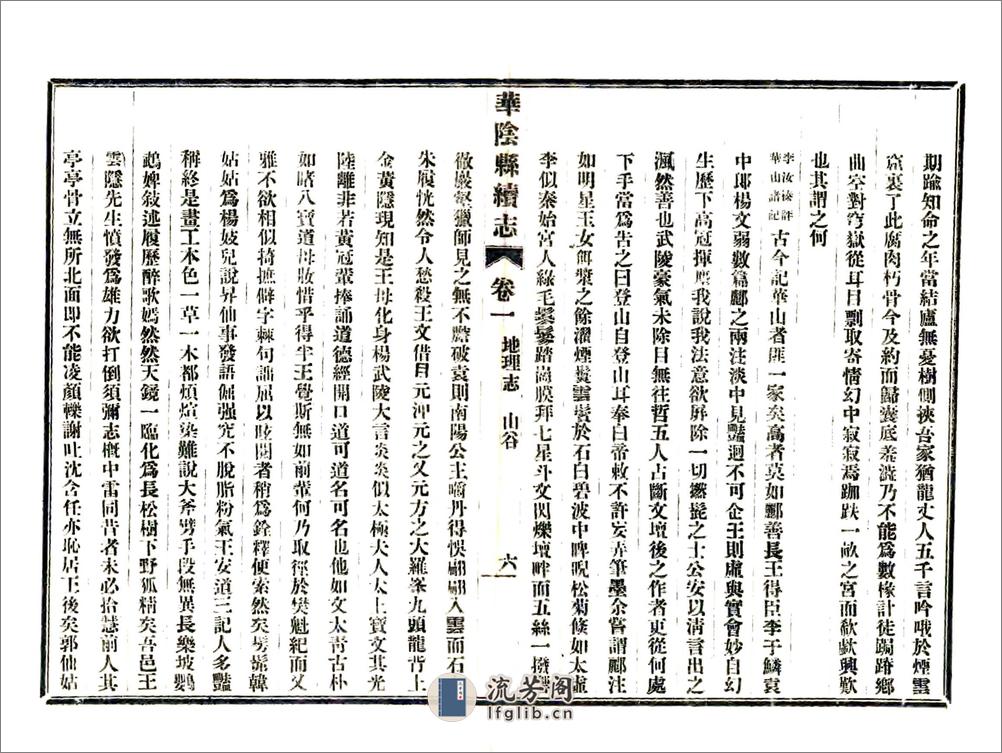 期踰知命之年當結廬無憂樹側挾吾家猶龍丈人五千言吟哦於煙雲
窟裏了此腐肉朽骨今及約而歸囊底羞澁乃不能爲數椽計徒跼蹐鄉
曲空對穹嶽從耳目剽取寄情幻中寂寂焉跏趺一畝之宮而欷歔興歎
也其謂之何
李汝榛評華山諸記
古今記華山者匪一家矣高者莫如酈善長王得臣李于鱗袁
中郎楊文弱數篇酈之兩注淡中見豔迥不可企王則虛與實會妙自幻
生歷下高冠揮麈我說我法意欲屏除一切撚髭之士公安以清言出之
渢然善也武陵豪氣未除目無往哲五人占斷文壇後之作者更從何處
下手當爲告之曰登山自登山耳奉白帝敕不許妄弄筆墨余嘗謂酈注
如明星玉女餌漿之餘濯煙鬟雲鬢於石臼碧波中睥睨松菊倏如太虛
李似秦始宮人綠毛鬖鬖踏崗膜拜七星斗文閃爍壇畔而五絲一撥
徹巖壑獵師見之無不膽破袁則南陽公主嚼丹得悞翩翩入雲而石
朱履恍然令人愁殺王文借目元沖元之又元方之大羅峯九頭龍背上
金黃隱現知是王母化身楊武陵大言炎炎似太極大人太上寶文其光
陸離非若黃冠輩捧誦道德經開口道可道名可名也他如文太青古朴
如睹八寶道母妝惜乎得半王覺斯無如前輩何乃取徑於樊魁紀而又
雅不欲相似掎摭僻字棘句詘屈以眩閱者稍爲銓釋便索然矣髣髴韓
姑姑爲楊妓兒說昇仙事發語倔强究不脫脂粉氣王安道三記人多豔
稱終是畫工本色一草一木都煩渲染難說大斧劈手段無異長樂坡鸚
鵡婢敘述履歷醉歌嫣然然天鏡一臨化爲長松樹下野狐精矣吾邑王
雲隱先生憤發爲雄力欲打倒須彌志槪中雷同昔者未必拾慧前人其
亭亭骨立無所北面卽不能凌顏轢謝吐沈含任亦恥居王後矣郭仙姑
華陰縣續志
卷一
地理志
山谷
六
流芳阁
lfglib.cn